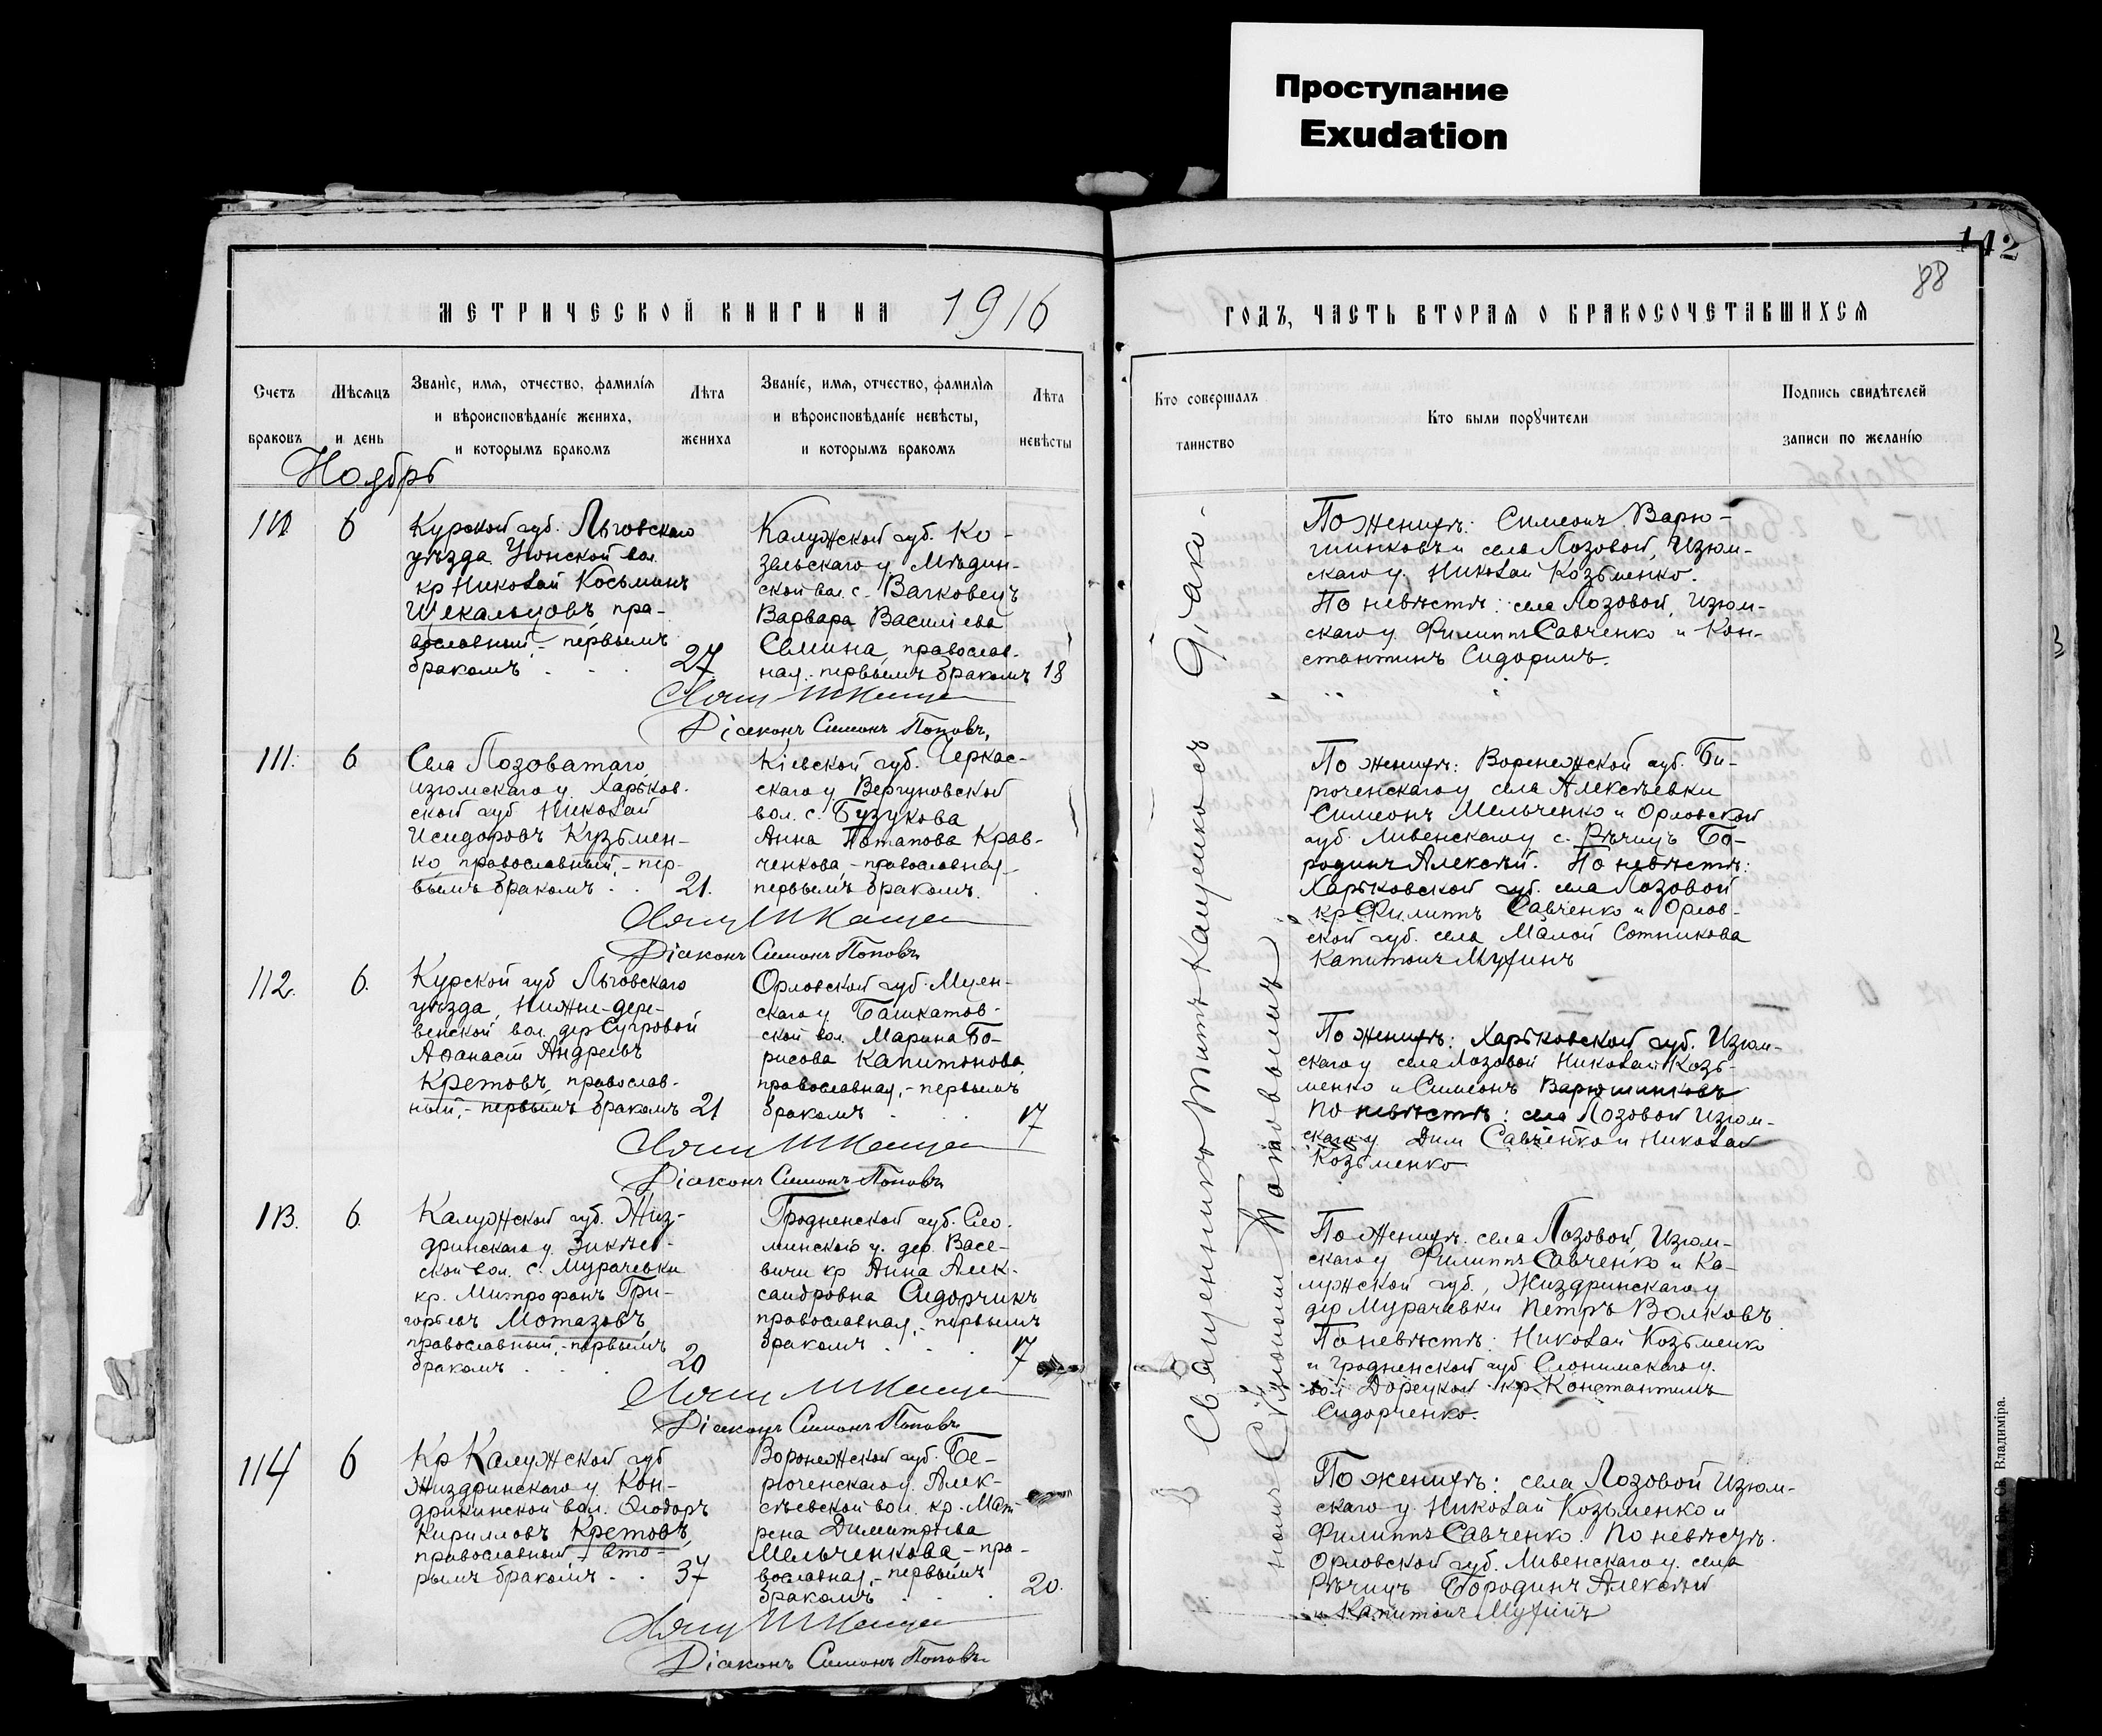 Проступание
Exudation
142
88
МЕТРИЧЕСКОЙ КНИГИ НА 1916
ГОДЪ, ЧАСТЬ ВТОРАЯ О БРАКОСОЧЕТАВШИХСЯ
Счетъ
браковъ
Мѣсяцъ
и день
Званіе, имя, отчество, фамилія
и вѣроисповѣданіе жениха,
и которымъ бракомъ
Лѣта
жениха
Званіе, имя, отчество, фамилія
и вѣроисповѣданіе невѣсты,
и которымъ бракомъ
Лѣта
невѣсты
Кто совершалъ
таинство
Кто были поручители
Подпись свидѣтелей
записи по желанію
Ноябрь
110
6
Курской губ. Льговскаго
уѣзда вол.
кр Николай Косьминъ
Шекальцовъ, пра-
вославный - первымъ
бракомъ 27
Калужской губ. Ко-
зельскаго у. Мѣдин-
ской вол. с.
Варвара Василіева
Семина, православ-
ная - первымъ бракомъ 18
Діаконъ Симеонъ Поповъ,
По женихѣ: Симеонъ Варю-
шинковъ и села Лозовой, Изюм-
скаго у. Николай Козьменко.
По невѣстѣ: села Лозовой, Изюм-
скаго у. Филиппъ Савченко и Кон-
стантинъ Сидоринъ.
111.
6
Села Лозоватаго
изюмскаго у. Харьков.
ской губ Николай
Исидоровъ Кузьмен-
ко, православный, - пер-
вымъ бракомъ 21.
Кіевской губ. Черкас-
скаго у Вергуновской
вол. с. Бузукова
Анна Потапова Крав-
ченкова, - православная -
первымъ бракомъ.
Діаконъ Симеонъ Поповъ
По женихѣ: Воронежской губ. Би-
рюченскаго у села Алексѣевки
Симеонъ Мельченко и Орловской
губ. Ливенскаго у с. Рѣчицъ Бо-
родинъ Алексѣй. По невѣстѣ:
Харьковской губ. села Лозовой
кр Филиппъ Савченко и Орлов-
ской губ. села Малой Сотникова
Капитонъ
112.
6.
Курской губ Льговскаго
уѣзда, Нижне-дере-
венской вол. дер
Аѳанасій Андреевъ
Кретовъ, православ-
ный, - первымъ бракомъ 21
Орловской губ. Мцен-
скаго у Башкатов-
ской вол. Марина Бо-
рисова Капитонова,
православная, - первымъ
бракомъ 17
Діаконъ Симеонъ Поповъ
По женихѣ: Харьковской губ. Изюм-
скаго у села Лозовой Николай Козь-
менко и Симеонъ Варюшинковъ
По невѣстѣ: села Лозовой Изюм-
скаго у Дим Савченко и Николай
Козьменко
113.
6.
Калужской губ. Жиз-
дринскаго у. Зикѣев-
ской вол. с. Мурачевки
кр. Митрофанъ Гри-
горьевъ Мотазовъ,
православный, - первымъ
бракомъ 20
Гродненской губ. Сло-
нимской у. дер. Васе-
вичи кр Анна Алек-
сандровна Сидорчикъ
православная, - первымъ
бракомъ 17
Діаконъ Симеонъ Поповъ
По женихѣ. села Лозовой, Изюм-
скаго у Филиппъ Савченко и Ка-
лужской губ., Жиздринскаго у
дер Мурачевки Петръ Волковъ
По невѣстѣ: Николай Козьменко
и Гродненской губ Слонимскаго у.
вол Дорецкой кр. Константинъ
Сидорченко.
114
6
Кр Калужской губ
Жиздринскаго у. Кон-
дрикинской вол. Ѳеодоръ
Кирилловъ Кретовъ,
православный, - вто-
рымъ бракомъ 37
Воронежской губ. Би-
рюченскаго у. Алек-
сѣевской вол. кр. Мат-
рена Димитріева
Мельченкова, - пра-
вославная, - первымъ
бракомъ 20.
Діаконъ Симеонъ Поповъ
По женихѣ: села Лозовой Изюм-
скаго у. Николай Козьменко и
Филиппъ Савченко. По невѣстѣ.
Орловской губ. Ливенскаго у. села
Рѣчицъ Бородинъ Алексѣй
и Капитонъ
Священникъ Митъ Кащенко съ Діако-
номъ Сѵмеономъ Поповымъ
Св. Владиміра.